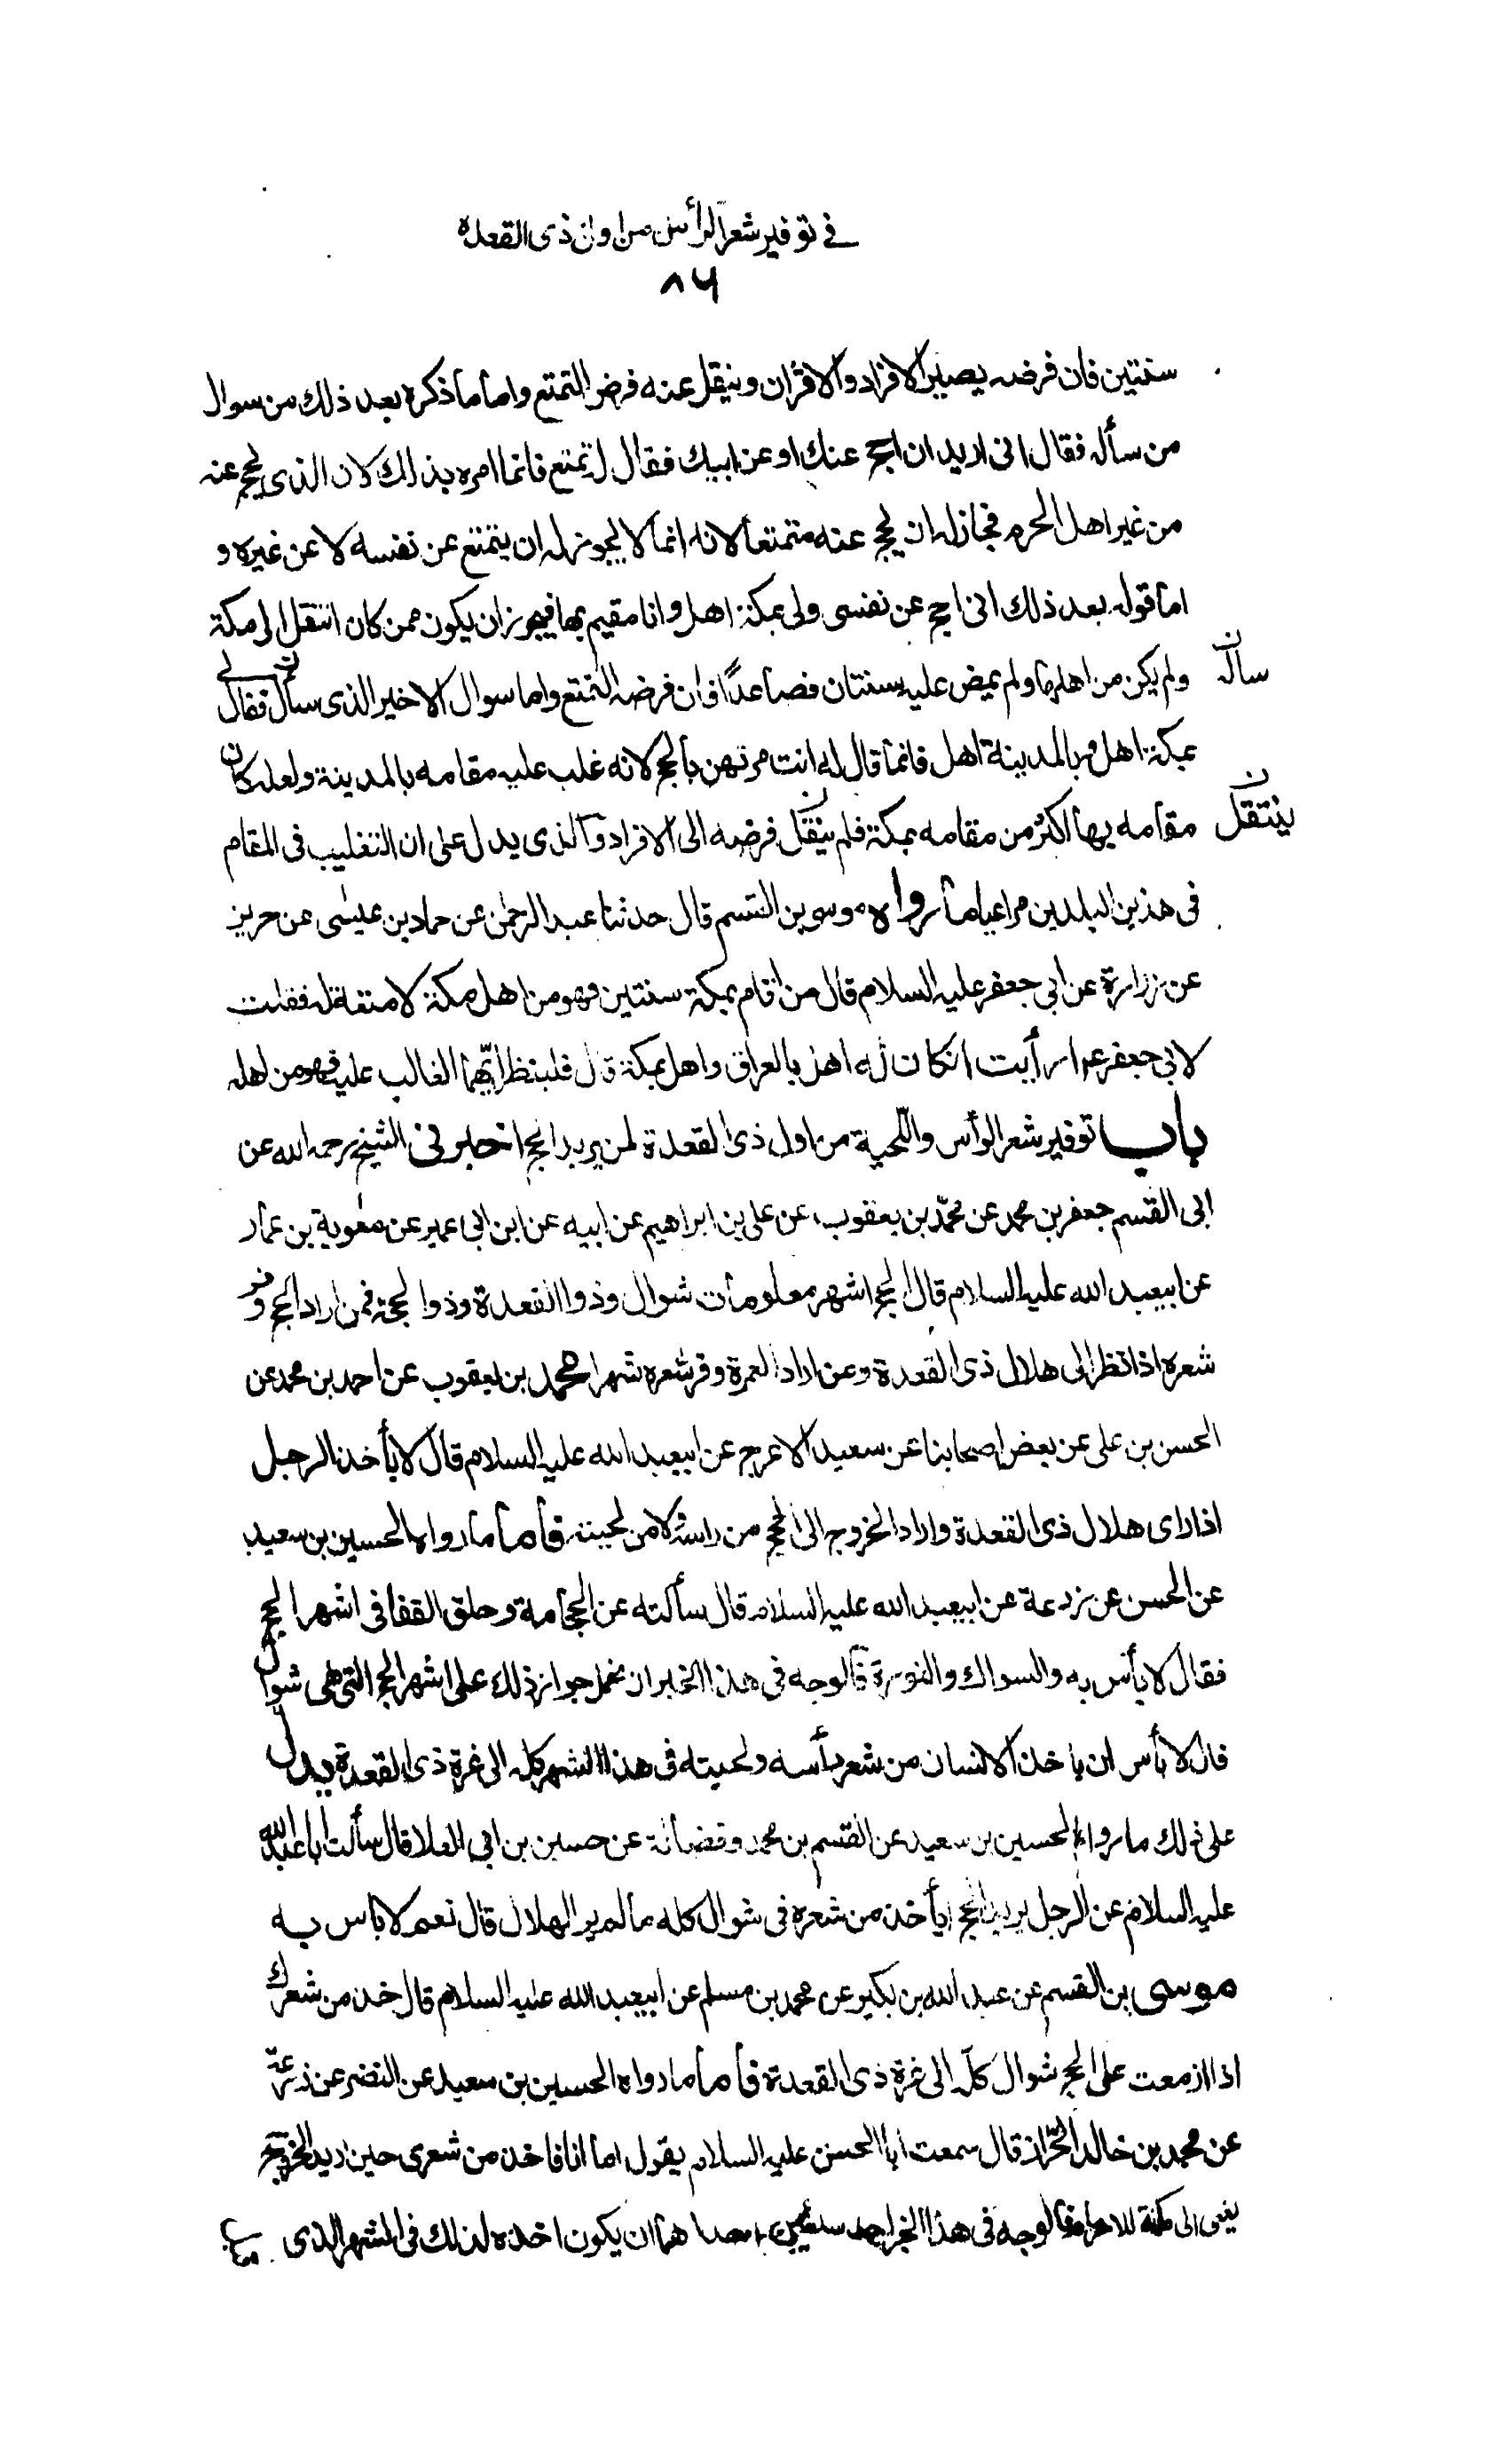 في توفير شعر الرأس من اول ذى القعده
٨٦
سنتين فان فرضه يصير الافراد والاقران وينقل عنه فرض التمتع واما ما ذكره بعد ذلك من سوال
من سأله فقال انى اريد ان احج عنك او عن ابيك فقال له تمتع فانما امره بذلك لان الذى يحج عنه
من غير اهل الحرم فجاز له ان يحج عنه متمتعا لانه انما لا يجوز له ان يتمتع عن نفسه لا عن غيره و
اما قوله بعد ذلك انى احج عن نفسى ولى بمكة اهل وانا مقيم بها فيجوز ان يكون ممن كان انتقل الى مكة
ولم يكن من اهلها ولم يمض عليه سنتان فصاعدًا فان فرضه التمتع واما سوال الاخير الذى سأل فقال لى
سأله ن
بمكة اهل وبالمدينة اهل فانما قال له انت مرتهن بالحج لانه غلب عليه مقامه بالمدينة ولعله كان
مقامه بها اكثر من مقامه بمكة فلم ينقل فرضه الى الافراد والذى يدل على ان التغليب فى المقام
ينتقل ن
فى هذين البلدين مراعيا ما رواه موسى بن القسم قال حدثنا عبد الرحمن عن حماد بن عيسى عن حريز
عن زرارة عن ابي جعفر عليه السلام قال من اقام بمكة سنتين فهو من اهل مكة لا متعة له فقلت
لابي جعفر ع ارأيت ان كان له اهل بالعراق واهل بمكة قال فلينظر ايّهما الغالب عليه فهو من اهله
باب توفير شعر الرأس واللّحية من اول ذى القعدة لمن يريد الحج اخبرنى الشيخ رحمه الله عن
ابى القسم جعفر بن محمد عن محمّد بن يعقوب عن على بن ابراهيم عن ابيه عن ابن ابى عمير عن معوية بن عمار
عن ابيعبد الله عليه السلام قال الحج اشهر معلومات شوال وذو القعدة وذو الحجة فمن اراد الحج وفر
شعره اذا نظر الى هلال ذى القعدة ومن اراد العمرة وفر شعره شهرا محمد بن يعقوب عن احمد بن محمد عن
الحسن بن على عن بعض اصحابنا عن سعيد الاعرج عن ابيعبد الله عليه السلام قال لا يأخذ الرجل
اذا راى هلال ذى القعدة واراد الخروج الى الحج من راسه ولا من لحيته فأما ما رواه الحسين بن سعيد
عن الحسن عن زرعة عن ابيعبد الله عليه السلام قال سألته عن الحجامة وحلق القفا فى اشهر الحج
فقال لا بأس به والسواك والنورة فالوجه فى هذا الخبر ان نحمل جواز ذلك على اشهر الحج التى هى شوال
فانه لا بأس ان ياخذ الانسان من شعر رأسه ولحيته فى هذا الشهر كله الى غرة ذى القعدة يدل
على ذلك ما رواه الحسين بن سعيد عن القسم بن محمد وفضالة عن حسين بن ابى العلا قال سألت ابا عبد الله
عليه السلام عن الرجل يريد الحج ايأخذ من شعره فى شوال كله ما لم ير الهلال قال نعم لا باس به
موسى بن القسم عن عبد الله بن بكير عن محمد بن مسلم عن ابيعبد الله عليه السلام قال خذ من شعرك
اذا ازمعت على الحج شوال كله الى غرة ذى القعدة فأما ما رواه الحسين بن سعيد عن النضر عن زرعة
عن محمد بن خالد الخزّاز قال سمعت ابا الحسن عليه السلام يقول اما انا فاخذ من شعرى حين اريد الخروج
يعنى الى مكة للاحرام فالوجه فى هذا الخبر احد شيئين احدهما ان يكون اخذه لذلك فى الشهر الذى